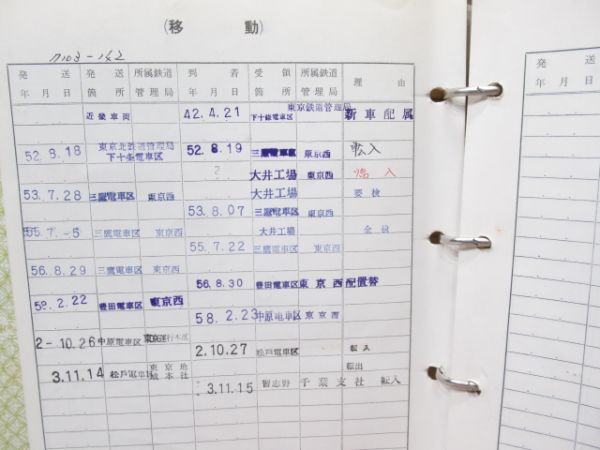 (移 動)
発 送 発 送 所属鉄道 到 着 受 領 所属鉄道 理 由
年 月 日 箇 所 管理局 年 月 日 箇 所 管理局
近畿車両 42.4.21 下十條電車区 東京鉄道管理局 新車配属
52.8.18 東京北鉄道管理局 下十条電車区 52.8.19 三鷹電車区 東京西 転入
大井工場 東京西 入
53.7.28 三鷹電車区 東京西 大井工場 要検
53.8.07 三鷹電車区 東京西
55.7.-5 三鷹電車区 東京西 大井工場 全検
55.7.22 三鷹電車区 東京西
56.8.29 三鷹電車区 東京西
56.8.30 豊田電車区 東京西 配置替
58.2.22 豊田電車区 東京西
58.2.23 中原電車区 東京西
2-10.26 中原電車区 2.10.27 松戸電車区 転入
3.11.14 松戸電車区 東京地域本社 転出
3.11.15 習志野 千葉支社 転入
発 送
年 月 日